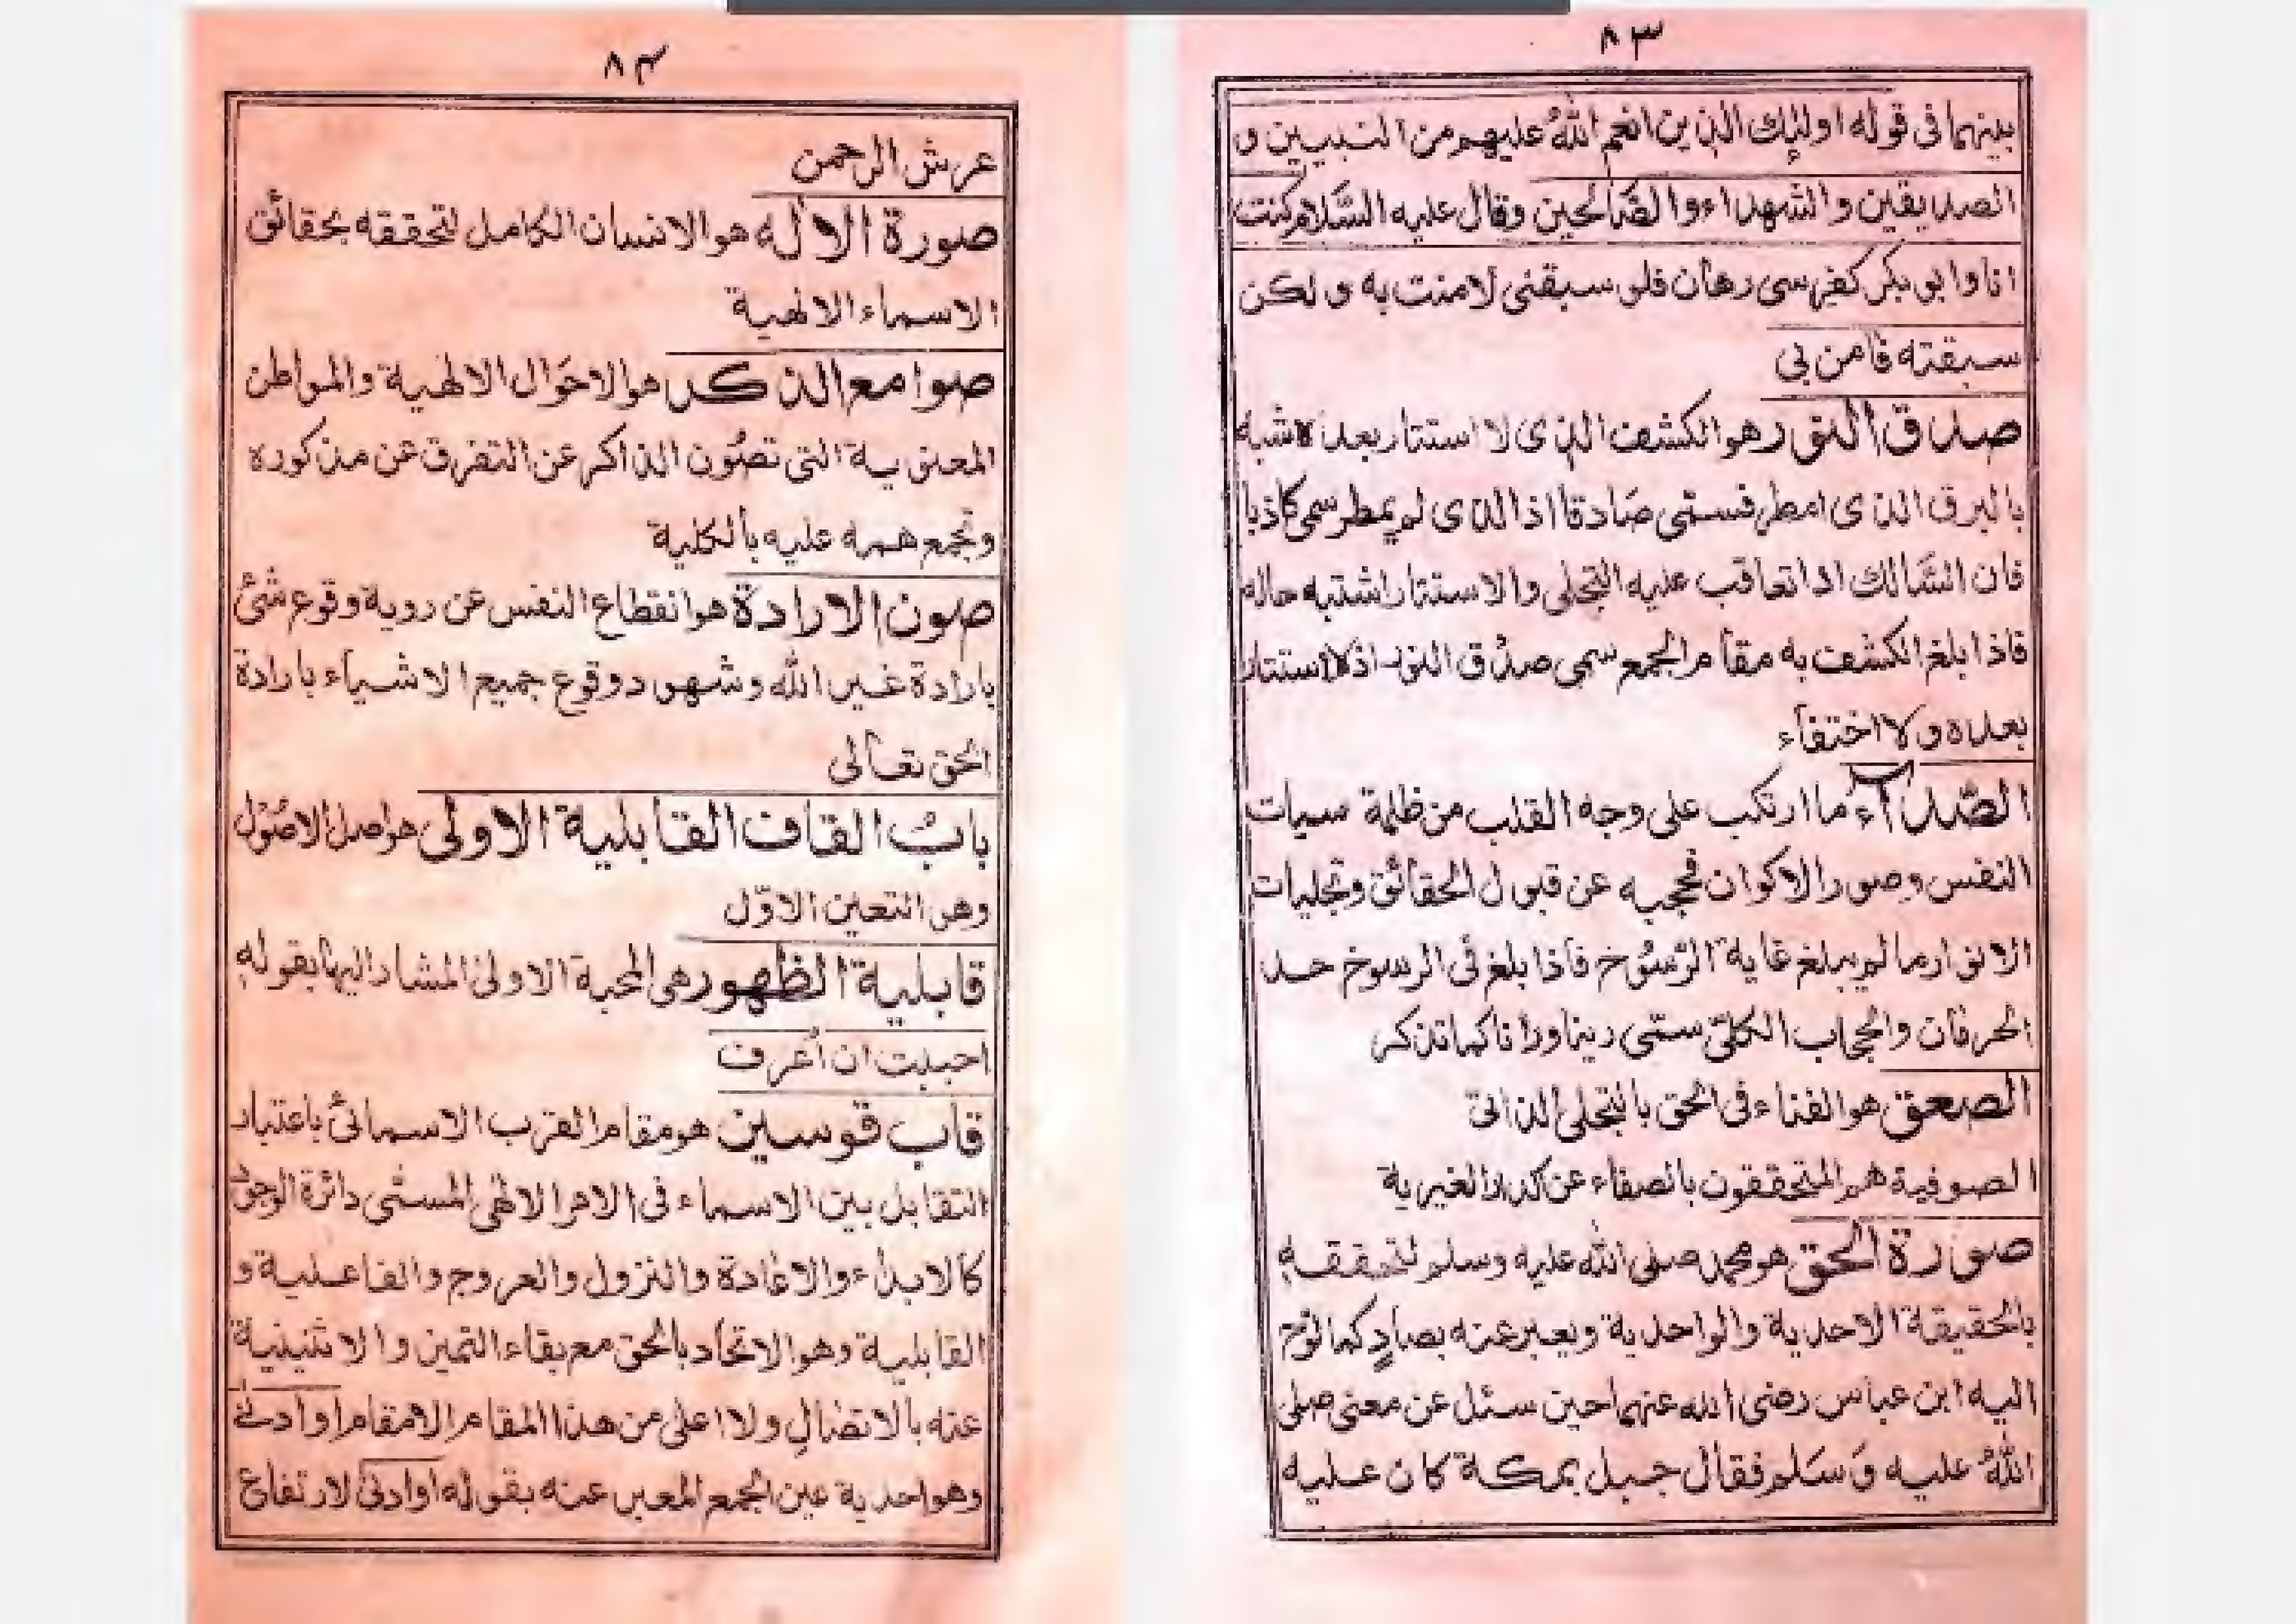 ٨٣
بينهما فى قوله اولئك الذين انعم الله عليهم من النبيين و
الصديقين والشهداء والصَّالحين وقال عليه السَّلام كنت
انا وابو بكر كفرسى رهان فلو سبقنى لامنت به ولكن
سبقته فامن بى
صدق النور هو الكشف الذى لا استتار بعده شبه
بالبرق الذى امطر فسمّى صادقا اذا الذى لم يمطر سمى كاذبا
فان السَّالك اذا تعاقب عليه التجلى والاستتار اشتبه حاله
فاذا بلغ الكشف به مقام الجمع سمى صدُق النور اذ لا استتار
بعده ولا اختفاء
الصَّداء ما ارتكب على وجه القلب من ظلمة سيات
النفس وصور الاكوان فحجبه عن قبول الحقائق وتجليات
الانوار ما لم يبلغ غاية الرُسُوخ فاذا بلغ فى الرسوخ حد
الحرفان والحجاب الكلىّ سمّى رينا ورانا كما تذكر
الصعق هو الفناء فى الحق بالتجلى الذاتى
الصوفية هم المتحققون بالصفاء عن كدر الغيرية
صورة الحق هو محمد صلى الله عليه وسلم لتحققه
بالحقيقة الاحدية والواحدية ويعبر عنه بصادٍ كما لوّح
اليه ابن عباس رضى الله عنهما حين سئل عن معنى صلى
اللهُ عليه وَسَلم فقال جبل بمكة كان عليه
٨٤
عرش الرحمن
صورة الاله هو الانسان الكامل لتحققه بحقائق
الاسماء الالهية
صوامع الذكر هو الاحَوال الالهية والمواطن
المعنوية التى تصُون الذاكر عن التفرق عن مذكوره
وتجمع همه عليه بالكلية
صون الارادة هو انقطاع النفس عن روية وقوع شئ
بارادة غير الله وشهود وقوع جميع الاشياء بارادة
الحق تعالى
بابُ القاف القابلية الاولى هو اصل الاصُوْل
وهو التعين الاوّل
قابلية الظهور هى المحبة الاولى المشار اليها بقوله
احببت ان أعرف
قاب قوسين هو مقام القرب الاسمائى باعتبار
التقابل بين الاسماء فى الامر الالهى المسمّى دائرة الوجود
كالابداء والاعادة والنزول والعروج والفاعلية و
القابلية وهو الاتحاد بالحق مع بقاء التميز والاثنينية
عنه بالاتصال ولا اعلى من هذا المقام الا مقام او ادنى
وهو احدية عين الجمع المعبر عنه بقوله او ادنى لارتفاع